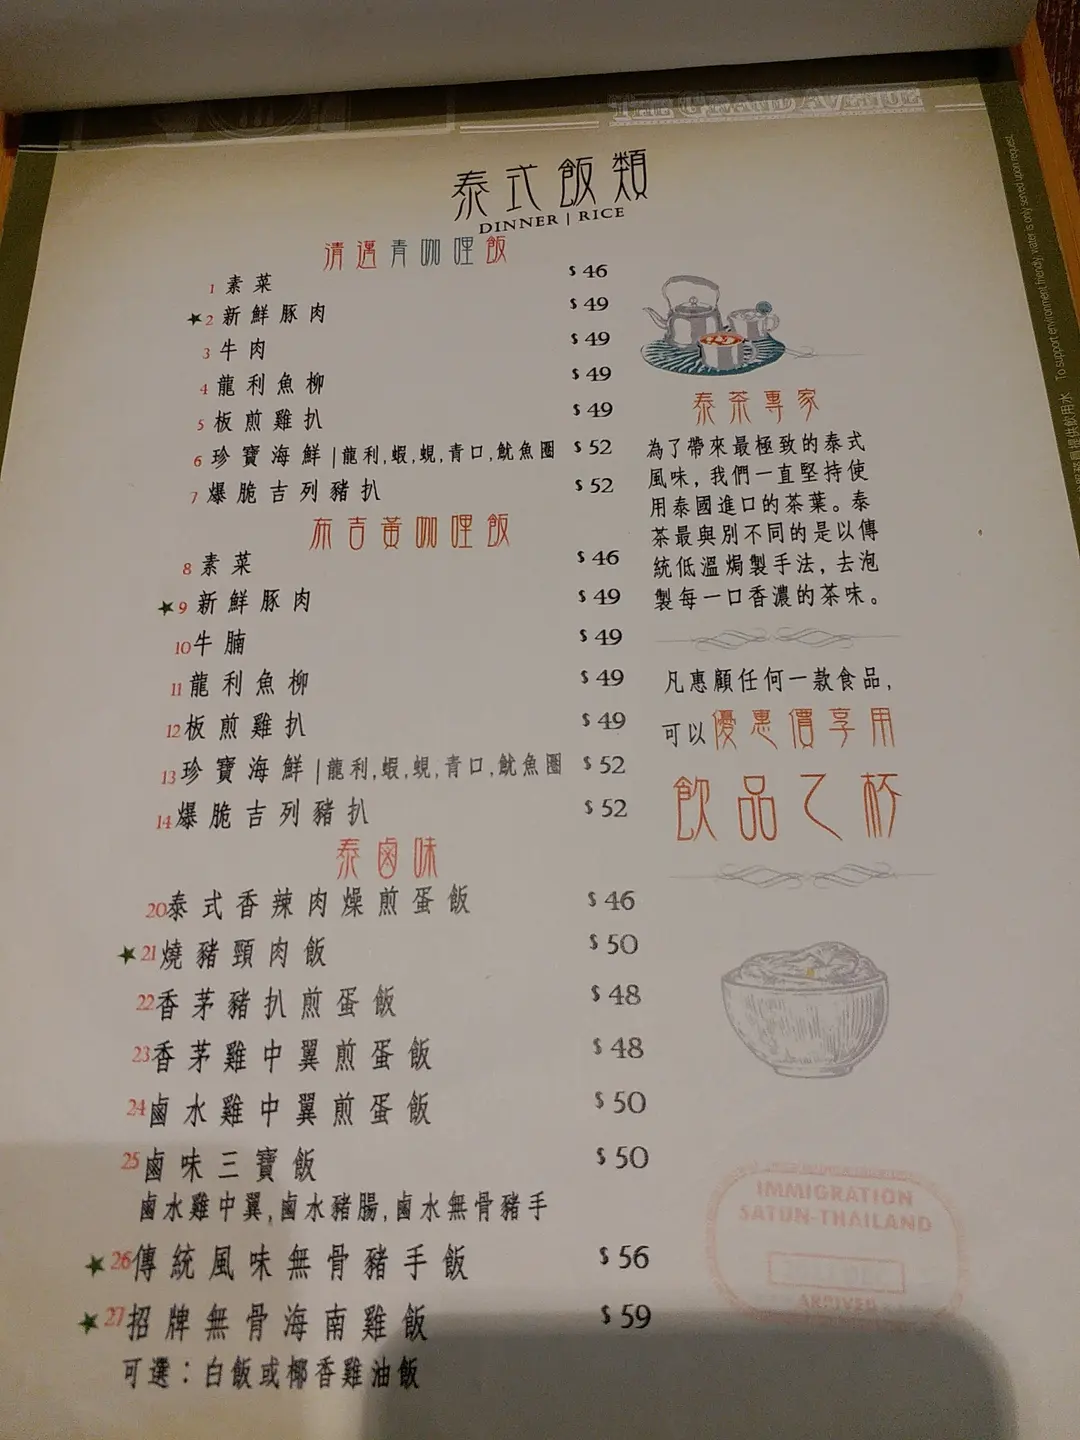 THE GRAND AVENUE
泰式飯類
DINNER | RICE
清邁青咖哩飯
1 素菜 $ 46
★2 新鮮豚肉 $ 49
3 牛肉 $ 49
4 龍利魚柳 $ 49
5 板煎雞扒 $ 49
6 珍寶海鮮|龍利,蝦,蜆,青口,魷魚圈 $ 52
7 爆脆吉列豬扒 $ 52
布吉黃咖哩飯
8 素菜 $ 46
★9 新鮮豚肉 $ 49
10 牛腩 $ 49
11 龍利魚柳 $ 49
12 板煎雞扒 $ 49
13 珍寶海鮮|龍利,蝦,蜆,青口,魷魚圈 $ 52
14 爆脆吉列豬扒 $ 52
泰鹵味
20 泰式香辣肉燥煎蛋飯 $ 46
★21 燒豬頸肉飯 $ 50
22 香茅豬扒煎蛋飯 $ 48
23 香茅雞中翼煎蛋飯 $ 48
24 鹵水雞中翼煎蛋飯 $ 50
25 鹵味三寶飯 $ 50
鹵水雞中翼,鹵水豬腸,鹵水無骨豬手
★26 傳統風味無骨豬手飯 $ 56
★27 招牌無骨海南雞飯 $ 59
可選：白飯或椰香雞油飯
泰茶專家
為了帶來最極致的泰式
風味，我們一直堅持使
用泰國進口的茶葉。泰
茶最與別不同的是以傳
統低溫焗製手法，去泡
製每一口香濃的茶味。
凡惠顧任何一款食品，
可以優惠價享用
飲品乙杯
IMMIGRATION
SATUN-THAILAND
ARRIVED
提供飲用水 To support environment friendly, water is only served upon request.